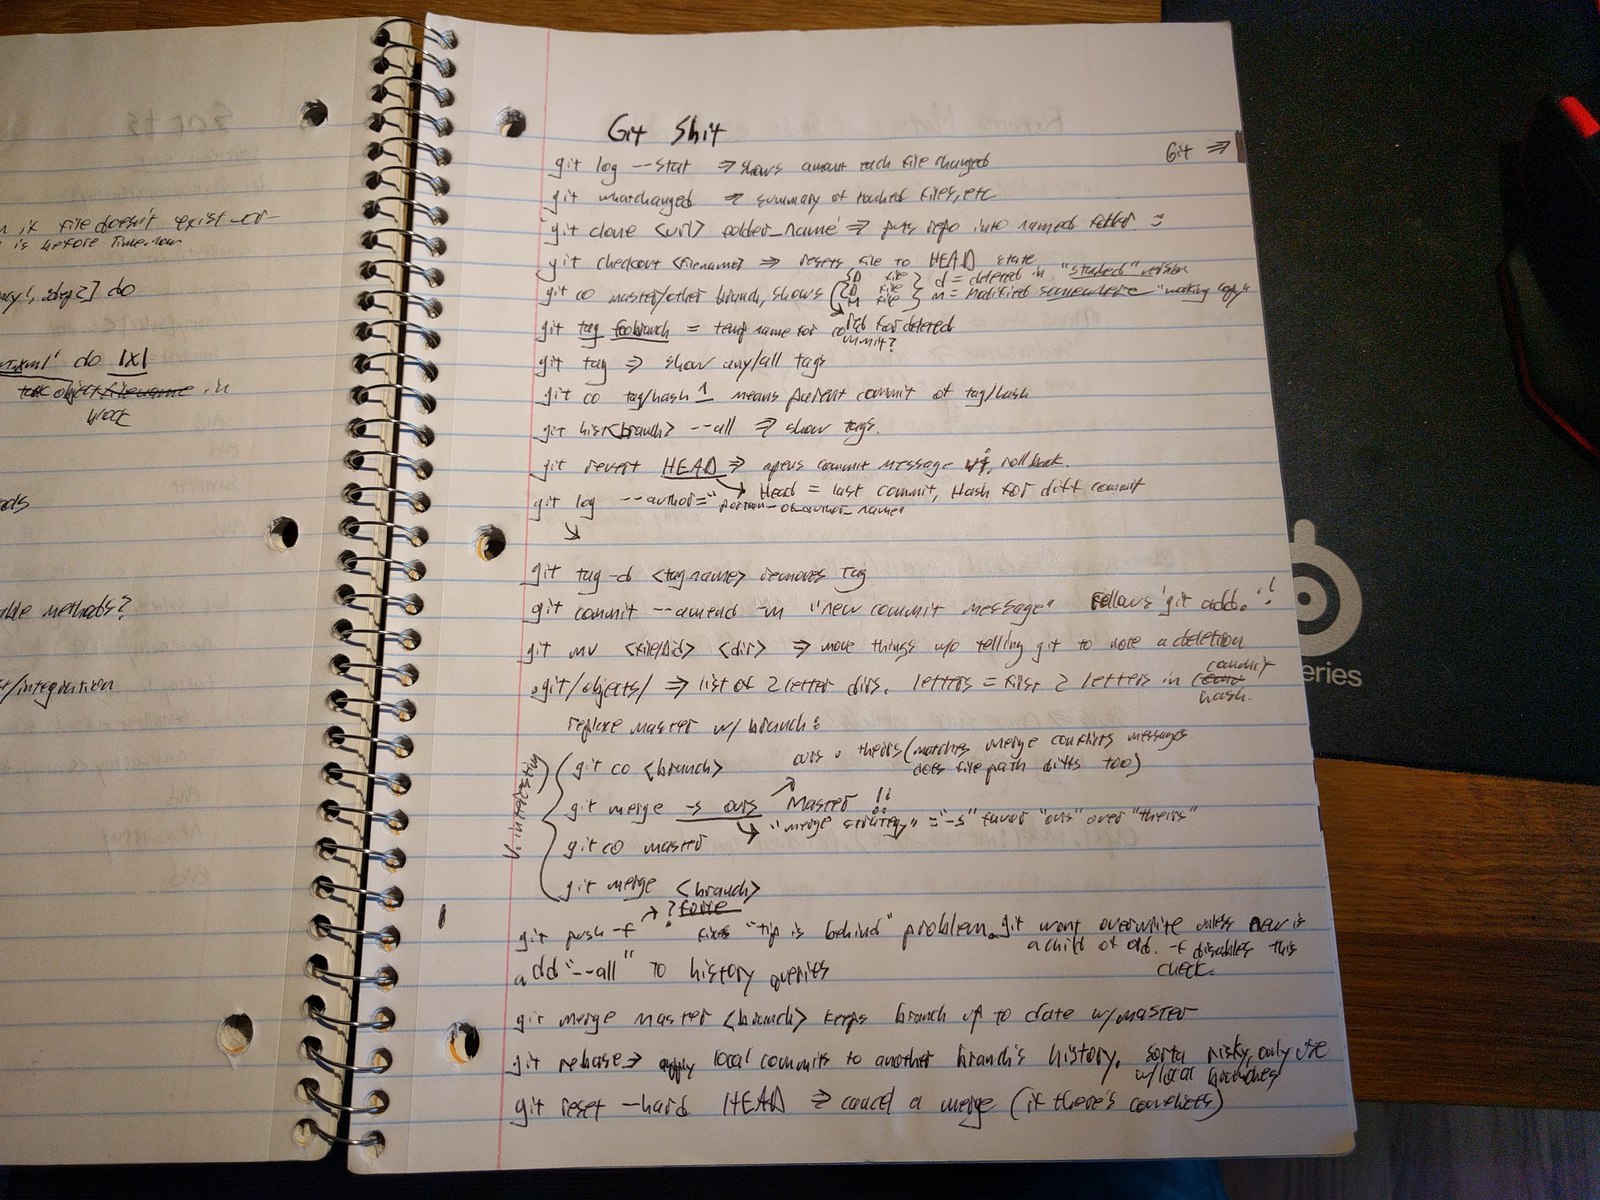 n if file doesn't exist -or-
e is before Time.now
ncy!, step2] do
do |x|
object filename in
block
able methods?
/integration
Git Shit
Git ⇒
git log --stat ⇒ shows amount each file changed
git whatchanged ⇒ summary of touched files, etc
git clone <url> folder_name ⇒ puts repo into named folder. :)
git checkout <filename> ⇒ resets file to HEAD state
git co master/other branch, shows { D file D file M file } d = deleted in "stashed" version
m = modified somewhere "working copy"
git tag foobranch = temp name for commit?
for deleted
git tag ⇒ show any/all tags
git co tag/hash^ means parent commit of tag/hash
git hist<branch> --all ⇒ show tags.
git revert HEAD ⇒ opens commit message vi, rollback.
Head = last commit, Hash for diff commit
git log --author="portion_of_author_name"
git tag -d <tagname> removes tag
git commit --amend -m "new commit message" Follows 'git add.'!
git mv <file/dir> <dir> ⇒ move things w/o telling git to note a deletion
.git/objects/ ⇒ list of 2 letter dirs. letters = first 2 letters in commit
hash.
replace master w/ branch:
V. interesting
git co <branch>
ours, theirs (matches merge conflicts messages
does file path diffs too)
git merge -s ours Master !!
"merge strategy" = "-s" favor "ours" over "theirs"
git co master
git merge <branch>
? force
git push -f fixes "tip is behind" problem. git wont overwrite unless new is
a child of old. -f disables this
check.
add "--all" to history queries
git merge master <branch> keeps branch up to date w/ master
git rebase → apply local commits to another branch's history. sorta risky, only use
w/ local branches
git reset --hard HEAD ⇒ cancel a merge (if there's conflicts)
eries